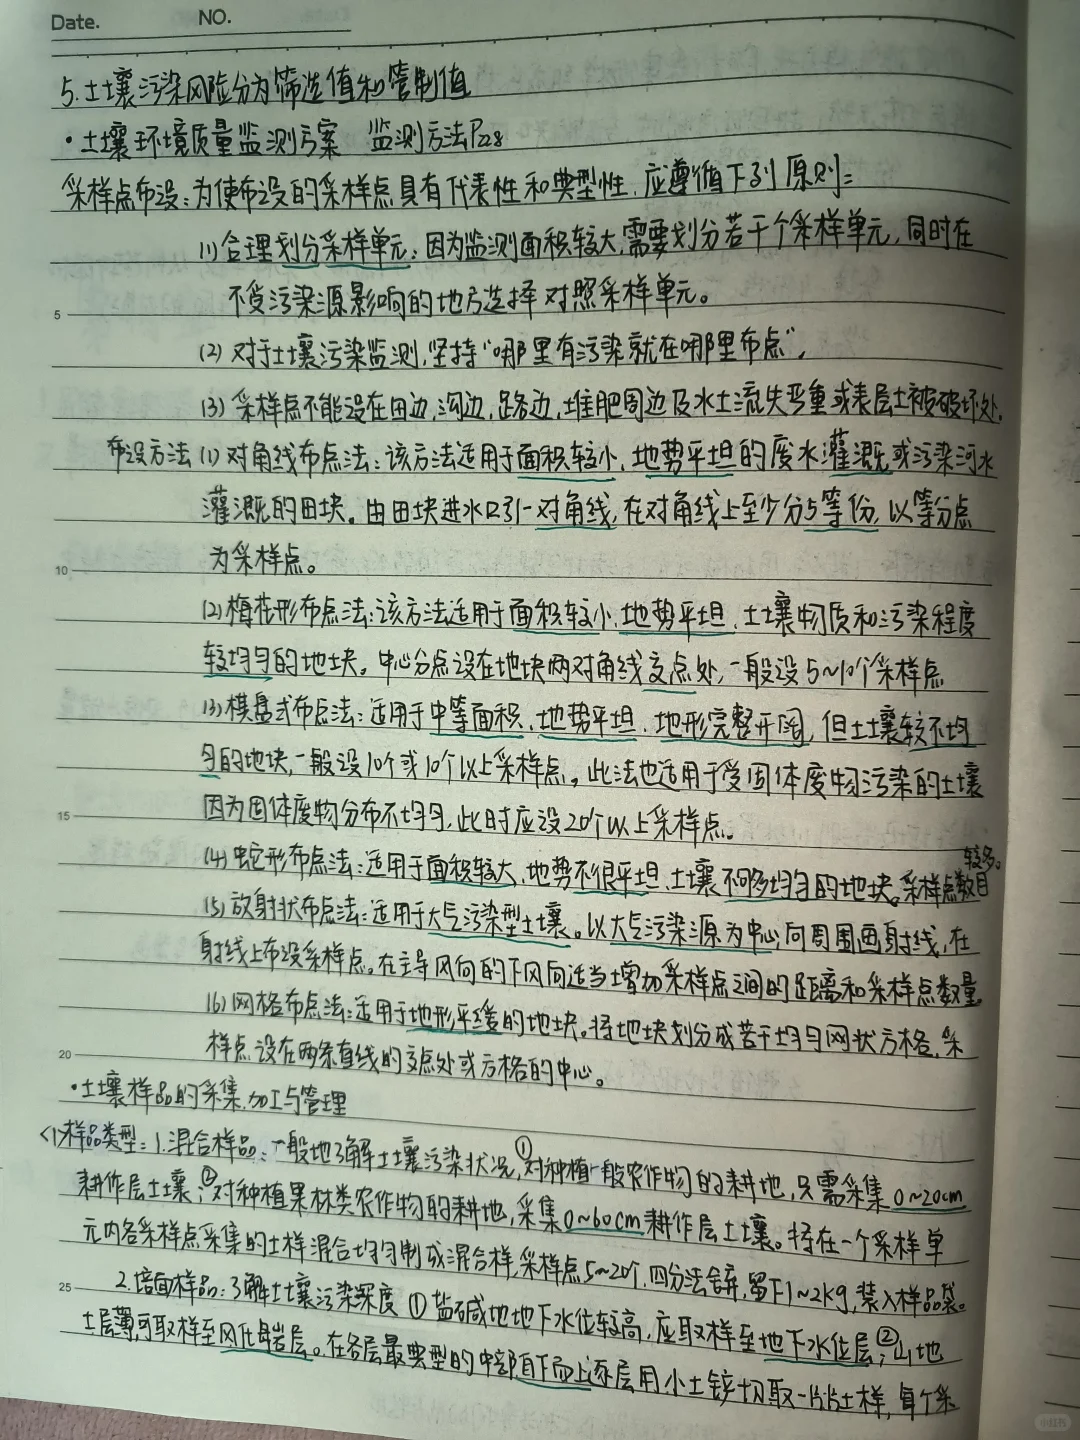 Date. NO.
5.土壤污染风险分为筛选值和管制值
·土壤环境质量监测方案 监测方法P228
采样点布设:为使布设的采样点具有代表性和典型性,应遵循下列原则:
(1)合理划分采样单元:因为监测面积较大,需要划分若干个采样单元,同时在
5 不受污染源影响的地方选择对照采样单元。
(2)对于土壤污染监测,坚持“哪里有污染就在哪里布点”,
(3)采样点不能设在田边,沟边,路边,堆肥周边及水土流失严重或表层土被破坏处.
布设方法(1)对角线布点法:该方法适用于面积较小,地势平坦的废水灌溉或污染河水
灌溉的田块。由田块进水口引一对角线,在对角线上至少分5等份,以等分点
10 为采样点。
(2)梅花形布点法:该方法适用于面积较小,地势平坦,土壤物质和污染程度
较均匀的地块。中心分点设在地块两对角线交点处,一般设5~10个采样点
(3)棋盘式布点法:适用于中等面积,地势平坦,地形完整开阔,但土壤较不均
匀的地块,一般设10个或10个以上采样点。此法也适用于受固体废物污染的土壤
15 因为固体废物分布不均匀,此时应设20个以上采样点。
(4)蛇形布点法:适用于面积较大,地势不很平坦,土壤不够均匀的地块。采样点数目较多。
(5)放射状布点法:适用于大气污染型土壤。以大气污染源为中心向周围画射线,在
射线上布设采样点。在主导风向的下风向适当增加采样点之间的距离和采样点数量
(6)网格布点法:适用于地形平缓的地块。将地块划分成若干均匀网状方格,采
20 样点设在两条直线的交点处或方格的中心。
·土壤样品的采集,加工与管理
<1>样品类型:1.混合样品:一般地了解土壤污染状况,①对种植一般农作物的耕地,只需采集0~20cm
耕作层土壤;②对种植果林类农作物的耕地,采集0~60cm耕作层土壤。将在一个采样单
元内各采样点采集的土样混合均匀制成混合样,采样点5~20个,四分法弃,留下1~2kg,装入样品袋。
25 2.剖面样品:了解土壤污染深度 ①盐碱地地下水位较高,应取样至地下水位层;②山地
土层薄,可取样至风化母岩层。在各层最典型的中部自下而上逐层用小土铲切取一片片土样,每个采
小红书